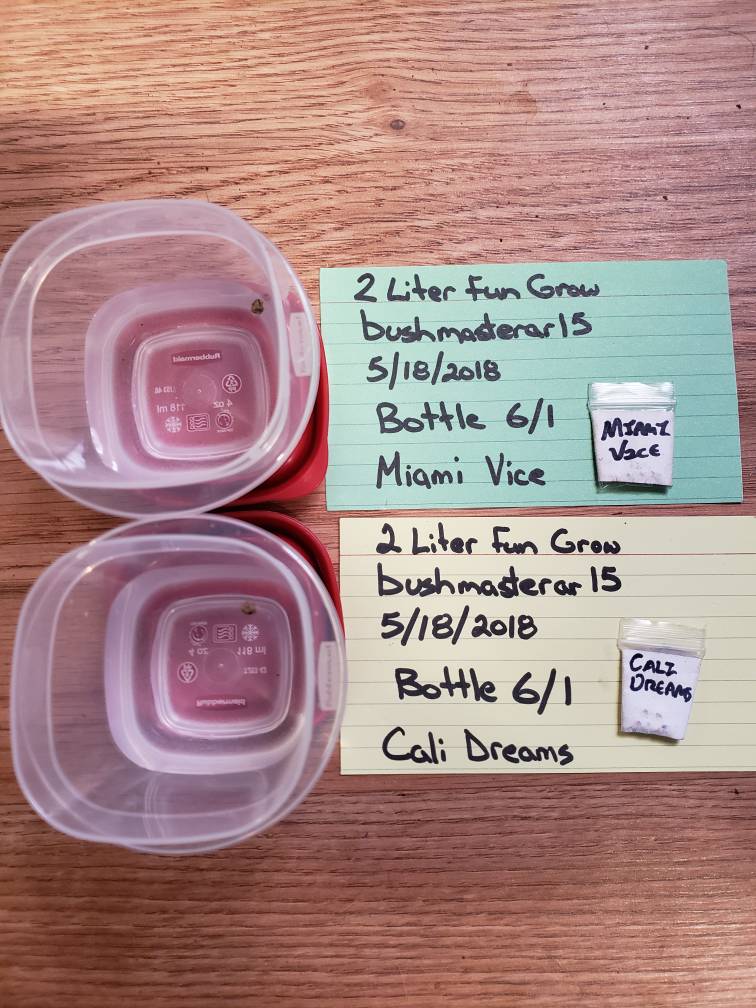 2 Liter Fun Grow
bushmasterar15
5/18/2018
Bottle 6/1
Miami Vice
MIAMI
VICE
2 Liter Fun Grow
bushmasterar15
5/18/2018
Bottle 6/1
Cali Dreams
CALI
DREAMS
Rubbermaid
4 oz
118 ml
4 oz
118 ml
Rubbermaid